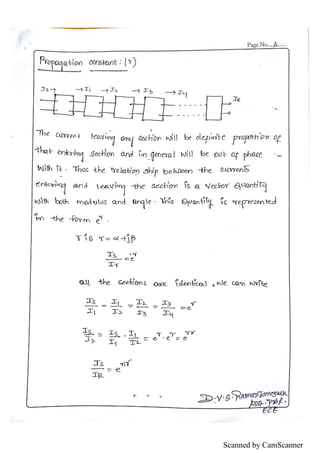 Page No. 3
Propagation constant : (γ)
Is → → I1 → I2 → I3 → I4
IR
The current leaving any section will be definite propotion of
that entering section and in general will be out of phase
with it. Thus the relation ship between the currents
entering and leaving the section is a vector quantity
with both modulus and angle. This quantity is represented
in the form e^γ.
γ is γ = α+jβ
Is/I1 = e^γ
all the sections are identical, we can write
Is/I1 = I1/I2 = I2/I3 = I3/I4 = e^γ
Is/I2 = Is/I1 . I1/I2 = e^γ . e^γ = e^2γ
Is/IR = e^nγ
D.V.S.
Asst. Prof.
ECE
Scanned by CamScanner